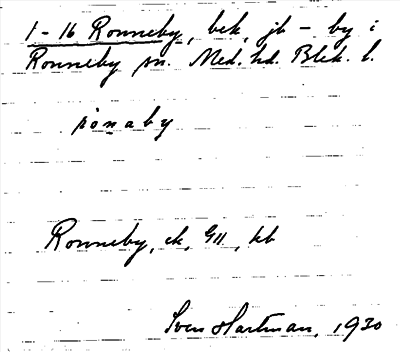 1-16 Ronneby, bek, jb - by i
Ronneby sn. Med. hd. Blek. l.
rònaby
Ronneby, ek, G11, kb
Sven Hartman, 1930